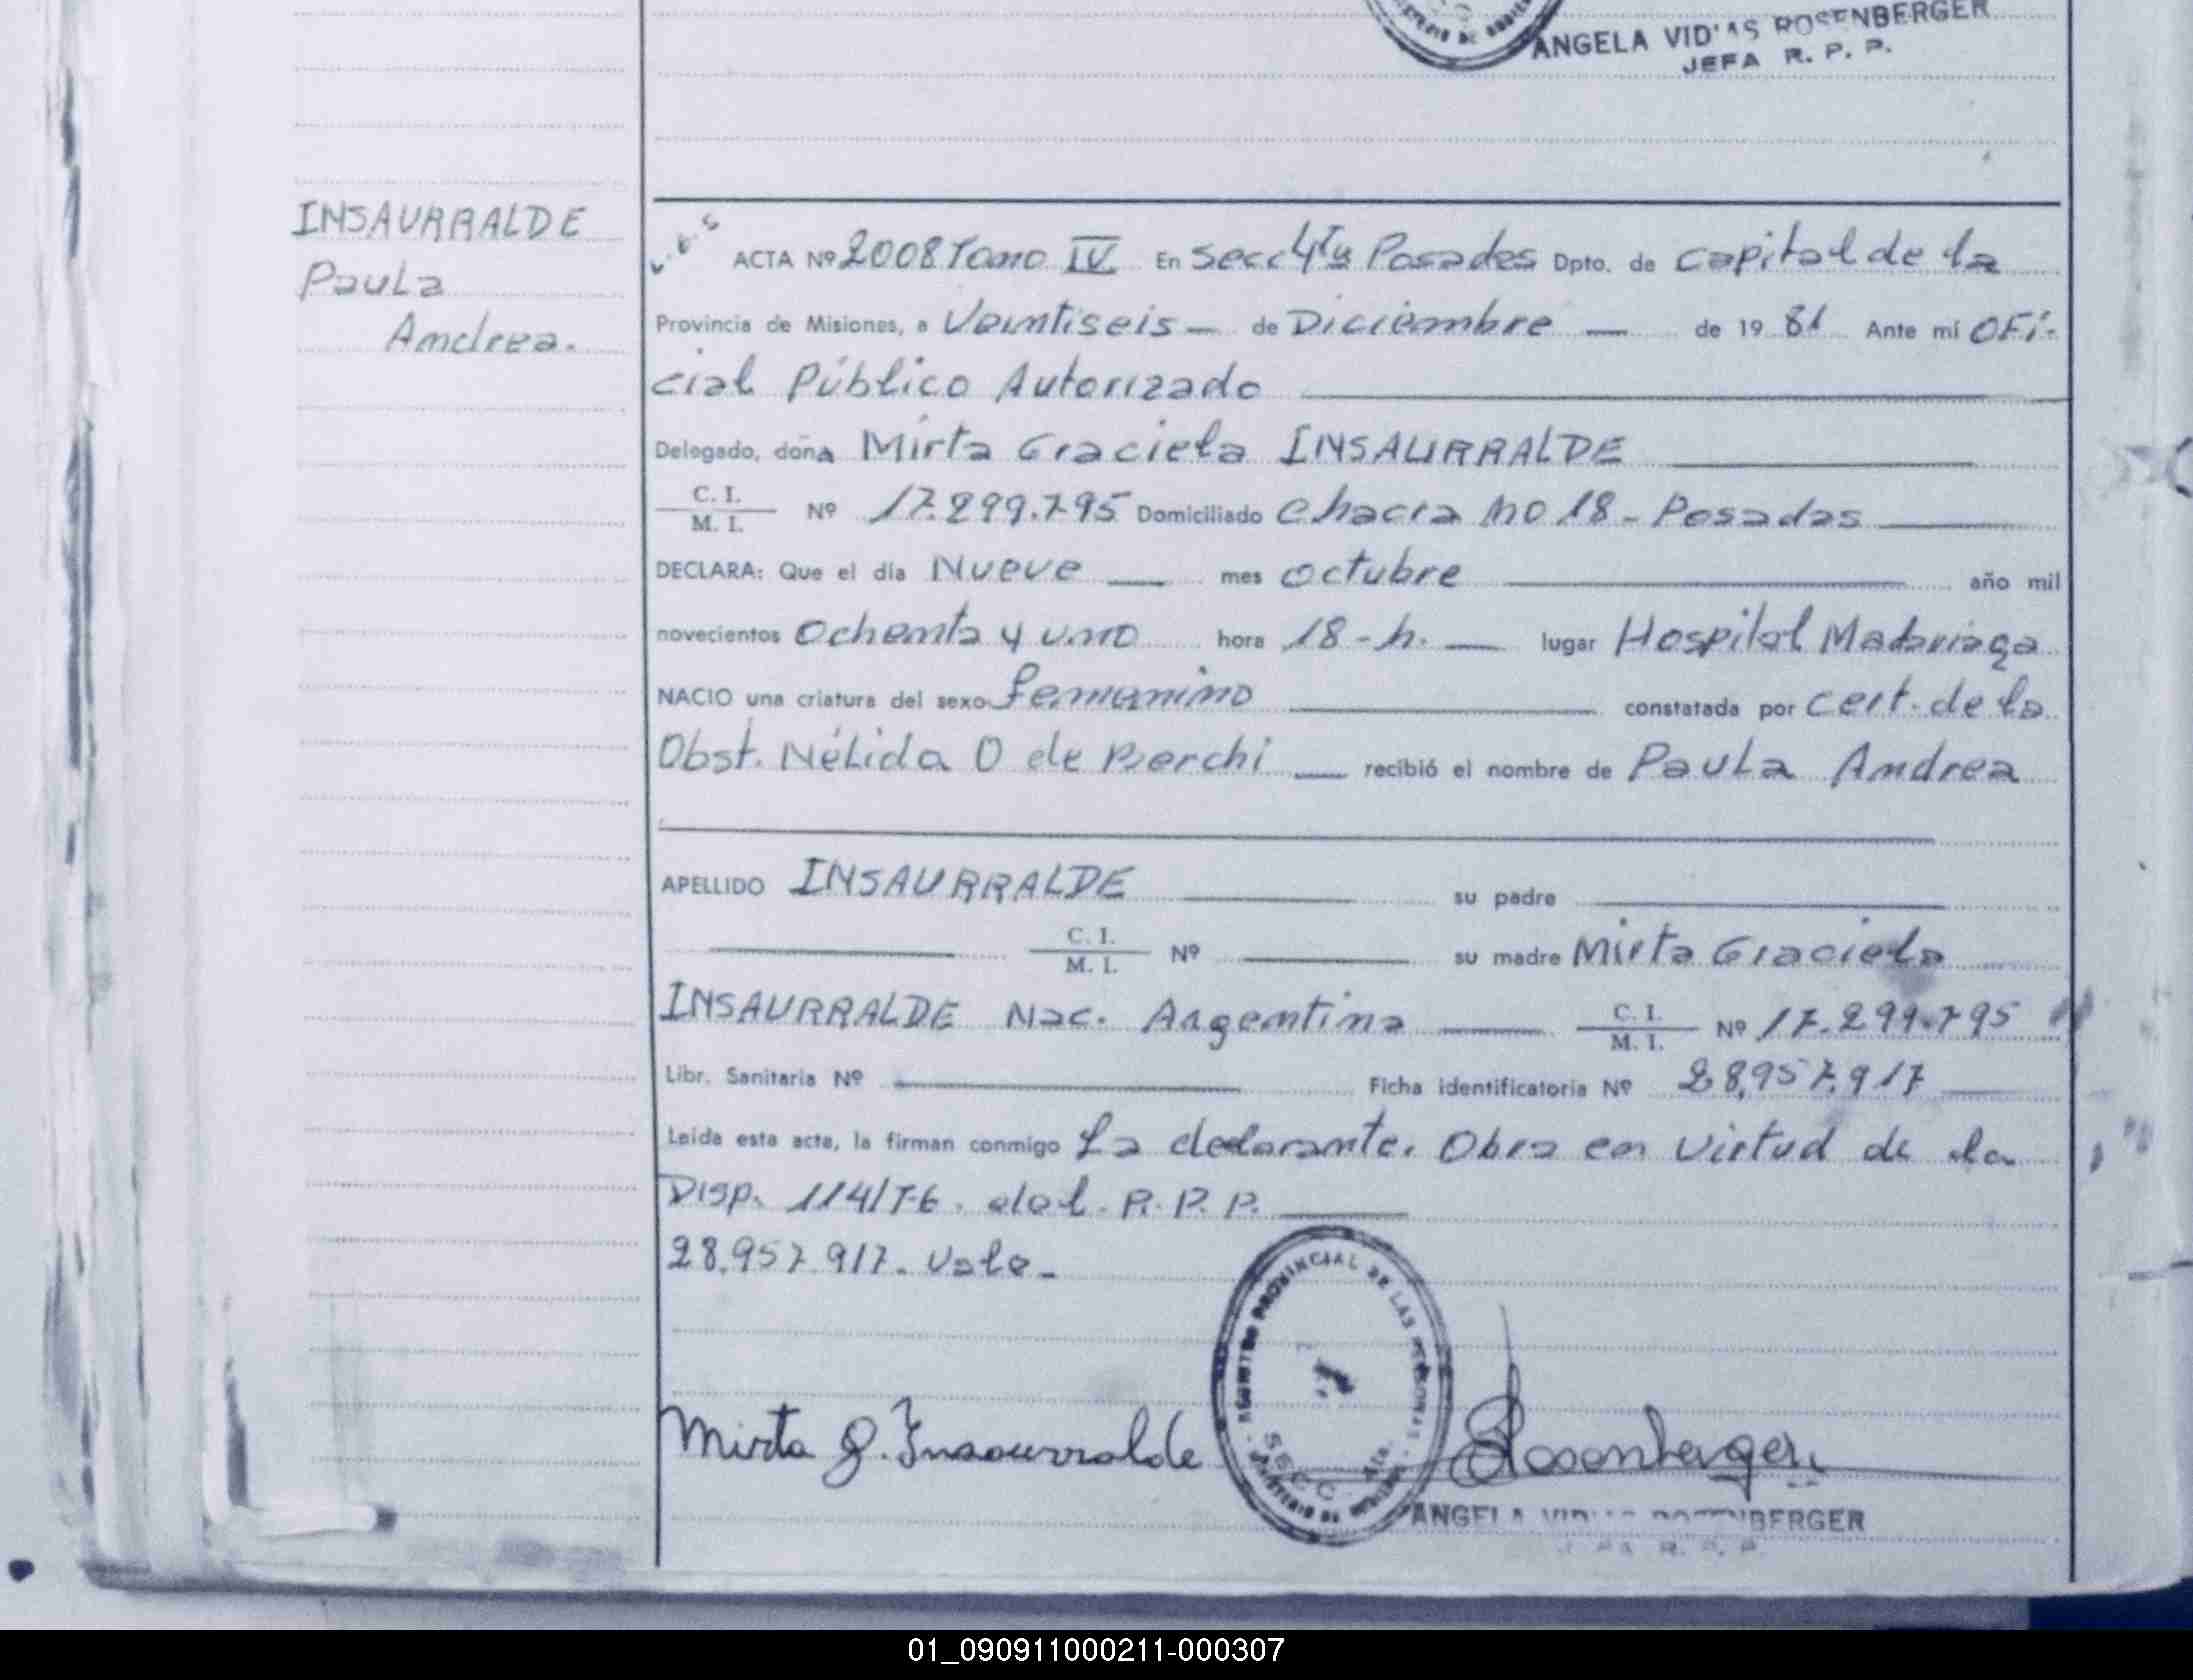 ANGELA VIDIAS ROSENBERGER
JEFA R. P. P.
INSAURRALDE
Paula
Andrea.
ACTA Nº 2008 Tomo IV En Secc 4ta Posadas Dpto. de Capital de la
Provincia de Misiones, a Veintiseis — de Diciembre — de 19 81 Ante mí OFi-
cial Público Autorizado
Delegado, doña Mirta Graciela INSAURRALDE
C. I.
M. I. Nº 17.299.795 Domiciliado Chacra no 18 - Posadas
DECLARA: Que el día Nueve — mes octubre año mil
novecientos Ochenta y uno hora 18 - h. — lugar Hospital Madariaga
NACIO una criatura del sexo femenino constatada por cert. de la
Obst. Nélida O de Berchi — recibió el nombre de Paula Andrea
APELLIDO INSAURRALDE su padre
C. I.
M. I. Nº su madre Mirta Graciela
INSAURRALDE Nac. Argentina C. I.
M. I. Nº 17.299.795
Libr. Sanitaria Nº Ficha identificatoria Nº 28.957.917
Leída esta acta, la firman conmigo La declarante. Obra en virtud de la
Disp. 114/76. del. R. P. P.
28.957.917. Vale -
REGISTRO PROVINCIAL DE LAS PERSONAS
SECC. 4ta.
Mirta G. Insaurralde
Rosenberger
ANGELA VIDIAS ROSENBERGER
JEFA R. P. P.
01_090911000211-000307